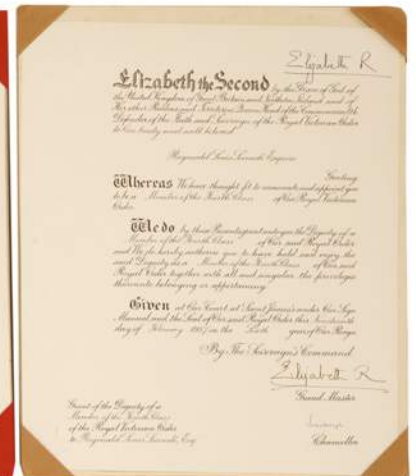 Elizabeth R
Elizabeth the Second, by the Grace of God of
the United Kingdom of Great Britain and Northern Ireland and of
Her other Realms and Territories Queen, Head of the Commonwealth,
Defender of the Faith and Sovereign of the Royal Victorian Order
to Our trusty and well beloved
Reginald Esquire
Greeting
Whereas We have thought fit to nominate and appoint you
to be a Member of the Fourth Class of Our Royal Victorian
Order
We do by these Presents grant unto you the Dignity of a
Member of the Fourth Class of Our said Royal Order
and We do hereby authorise you to have hold and enjoy the
said Dignity as a Member of the Fourth Class of Our said
Royal Order together with all and singular the privileges
thereunto belonging or appertaining
Given at Our Court at Saint James's under Our Sign
Manual and the Seal of Our said Royal Order this
day of February 1957 in the Sixth year of Our Reign
By The Sovereign's Command
Elizabeth R
Grand Master
Grant of the Dignity of a
Member of the Fourth Class
of the Royal Victorian Order
to Reginald Esq
Chancellor